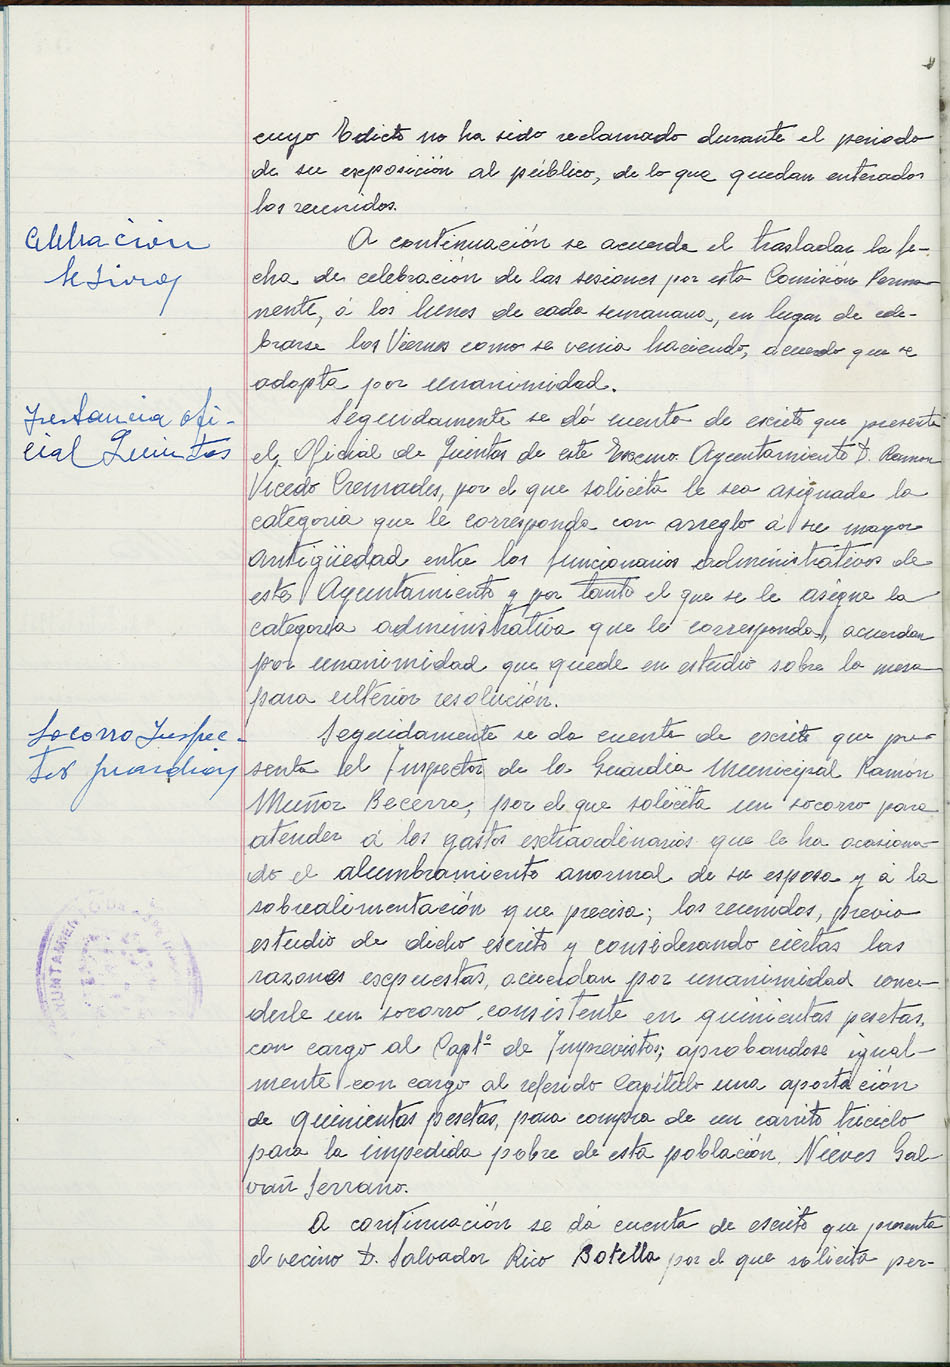 cuyo Edicto no ha sido reclamado durante el periodo
de su exposición al público, de lo que quedan enterados
los reunidos.
Celebración
sesiones
A continuación se acuerda el trasladar la fe-
cha de celebración de las sesiones por esta Comisión Perma-
nente, á los lunes de cada semanana, en lugar de cele-
brarse los Viernes como se venia haciendo, acuerdo que se
adopta por unanimidad.
Instancia ofi-
cial Quintas
Seguidamente se dá cuenta de escrito que presenta
el Oficial de Quintas de este Excmo. Ayuntamiento D. Ramon
Vicedo Cremades, por el que solicita le sea asignada la
categoria que le corresponda con arreglo á su mayor
antigüedad entre los funcionarios administrativos de
este Ayuntamiento y por tanto el que se le asigne la
categoria administrativa que le corresponda, acuerdan
por unanimidad que quede en estudio sobre la mesa
para ulterior resolución.
Socorro Inspec-
tor guardias
Seguidamente se da cuenta de escrito que pre-
senta el Inspector de la Guardia Municipal Ramón
Muñoz Becerra, por el que solicita un socorro para
atender á los gastos extraordinarios que le ha ocasiona-
do el alumbramiento anormal de su esposa y á la
sobrealimentación que precisa; los reunidos, previo
estudio de dicho escrito y considerando ciertas las
razones expuestas, acuerdan por unanimidad conce-
derle un socorro consistente en quinientas pesetas,
con cargo al Captº de Imprevistos; aprobandose igual-
mente con cargo al referido Capítulo una aportación
de quinientas pesetas, para compra de un carrito triciclo
para la impedida pobre de esta población, Nieves Gal-
vañ Serrano.
A continuación se dá cuenta de escrito que presenta
el vecino D. Salvador Rico Botella por el que solicita per-
AYUNTAMIENTO DE